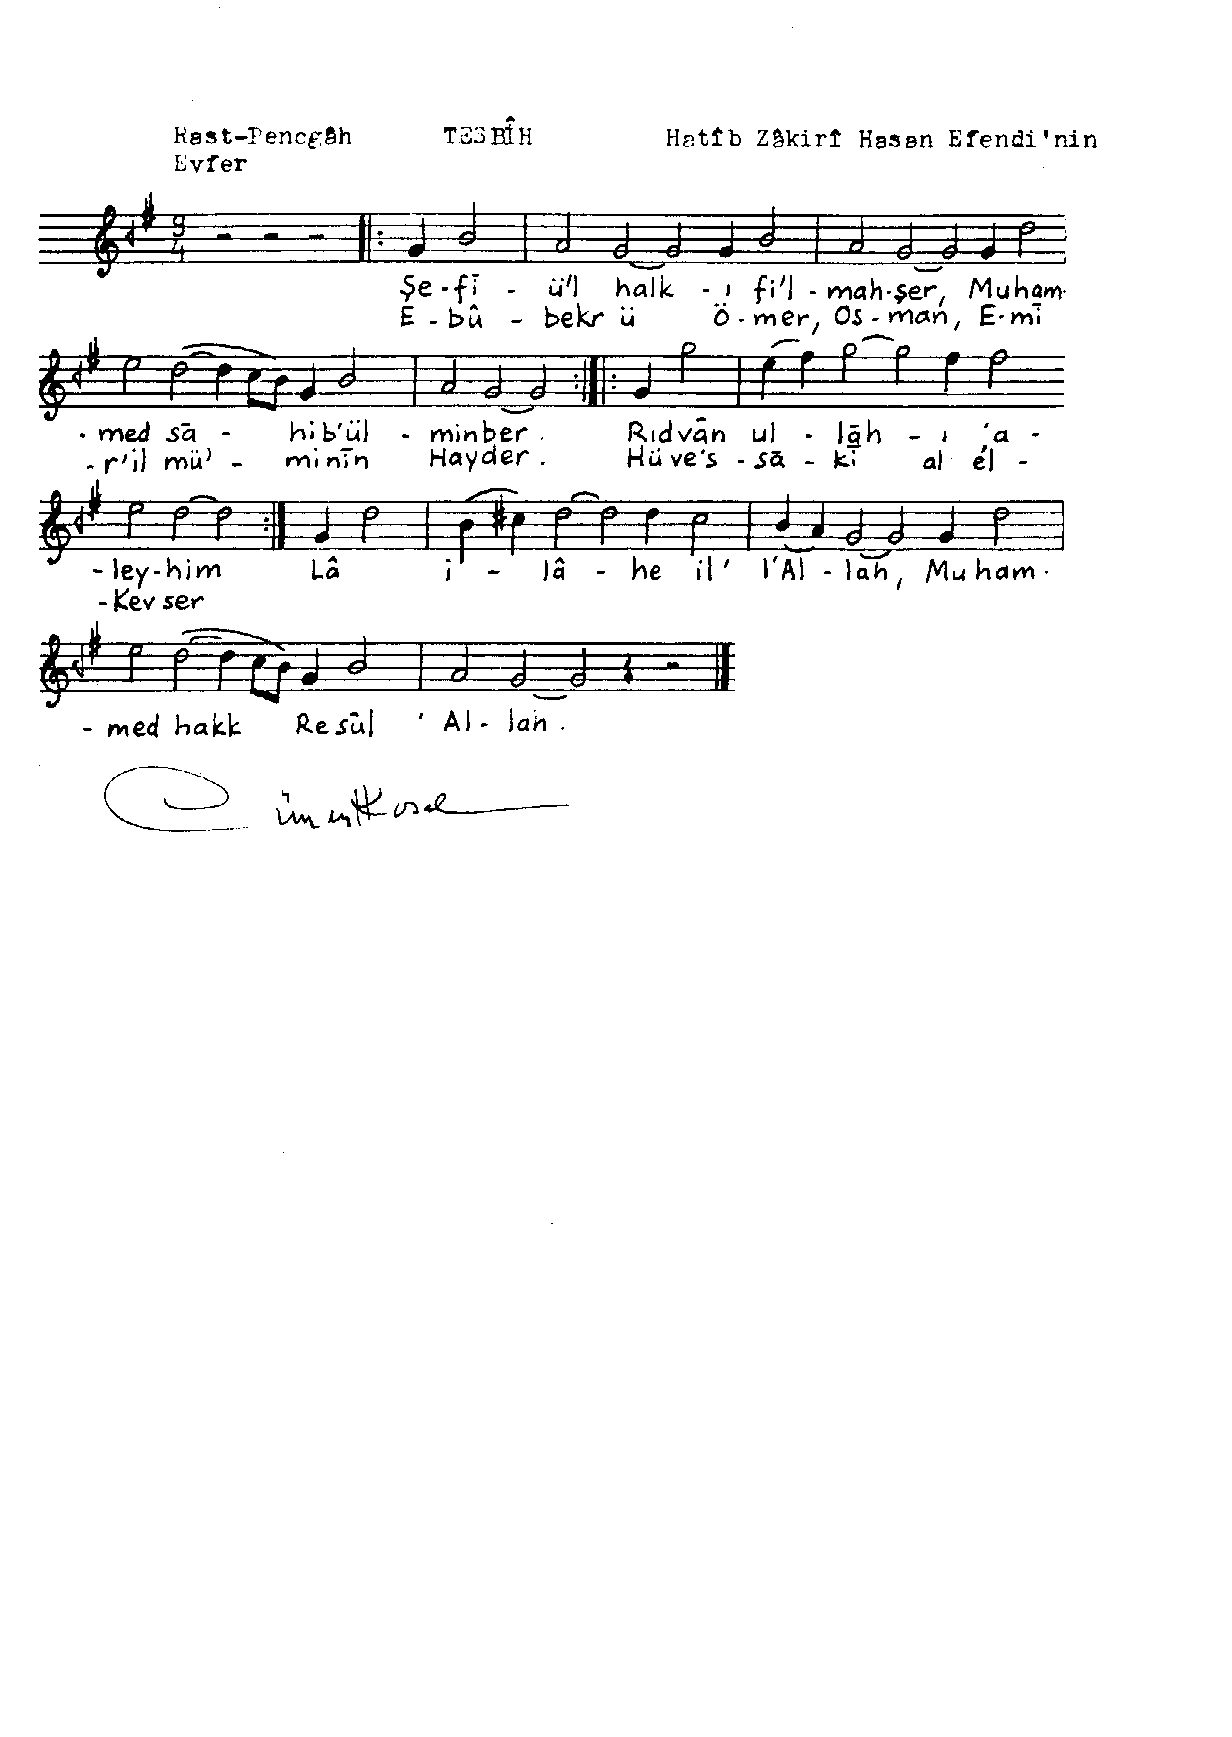 Rast-Pencgâh TESBÎH Hatîb Zâkirî Hasan Efendi'nin
Evfer
9
4
Şe-fī - ü'l halk - ı fi'l - mah-şer, Muham-
E - bû - bekr ü Ö-mer, Os-man, E-mī
-med sā - hib'ül - minber.
-r'il mü' - minīn Hayder.
Rıdvān ul - lāh - ı 'a -
Hüve's - sā - kī al el -
-ley-him Lâ i - lâ - he il' l'Al - lah, Muham-
-Kevser
-med hakk Resūl 'Al - lah.